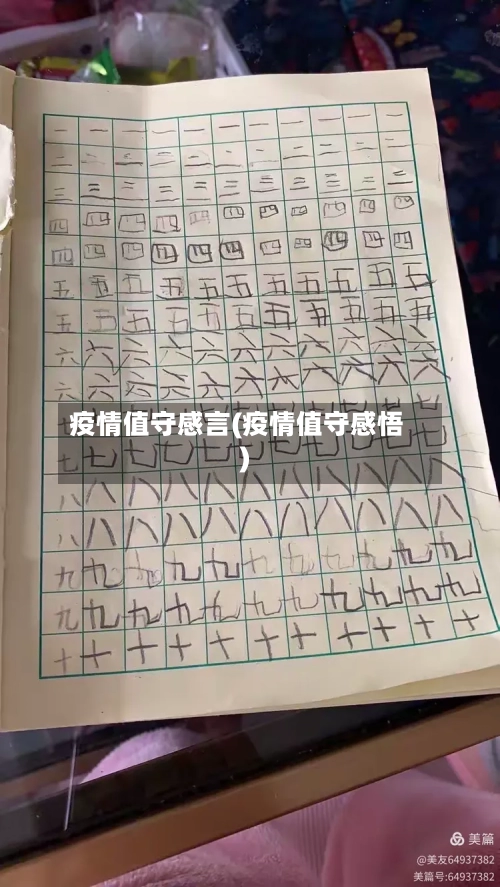 一 一 一 一 一 一 一 一 一 一 一
二 二 二 二 二 二 二 二 二 二 二
三 三 三 三 三 三 三 三 三 三 三
四 四 四 四 四 四 四 四 四 四 四
四 四 四 四 四 四 四 四 四 四 四
五 五 五 五 五 五 五 五 五 五 五
五 五 五 五 五 五 五 五 五 五 五
六 六 六 六 六 六 六 六 六 六 六
六 六 六 六 六 六 六 六 六 六 六
疫情值守感言(疫情值守感悟
)
七 七 七 七 七 七 七 七 七 七 七
八 八 八 八 八 八 八 八 八 八 八
八 八 八 八 八 八 八 八 八 八 八
九 九 九 九 九 九 九 九 九 九 九
九 九 九 九 九 九 九 九 九 九 九
十 十 十 十 十 十 十 十 十 十 十
美篇
@美友64937382
美篇号:64937382